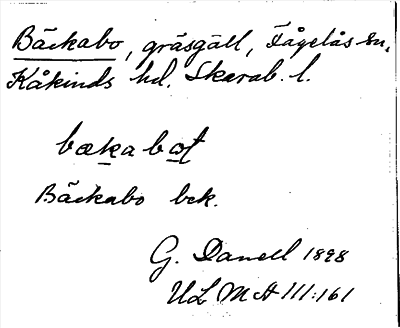 Bäckabo, gräsgäll, Fågelås sn,
Kåkinds hd. Skarab. l.
bækabøt
Bäckabo bek.
G. Danell 1898
ULMA 111:161